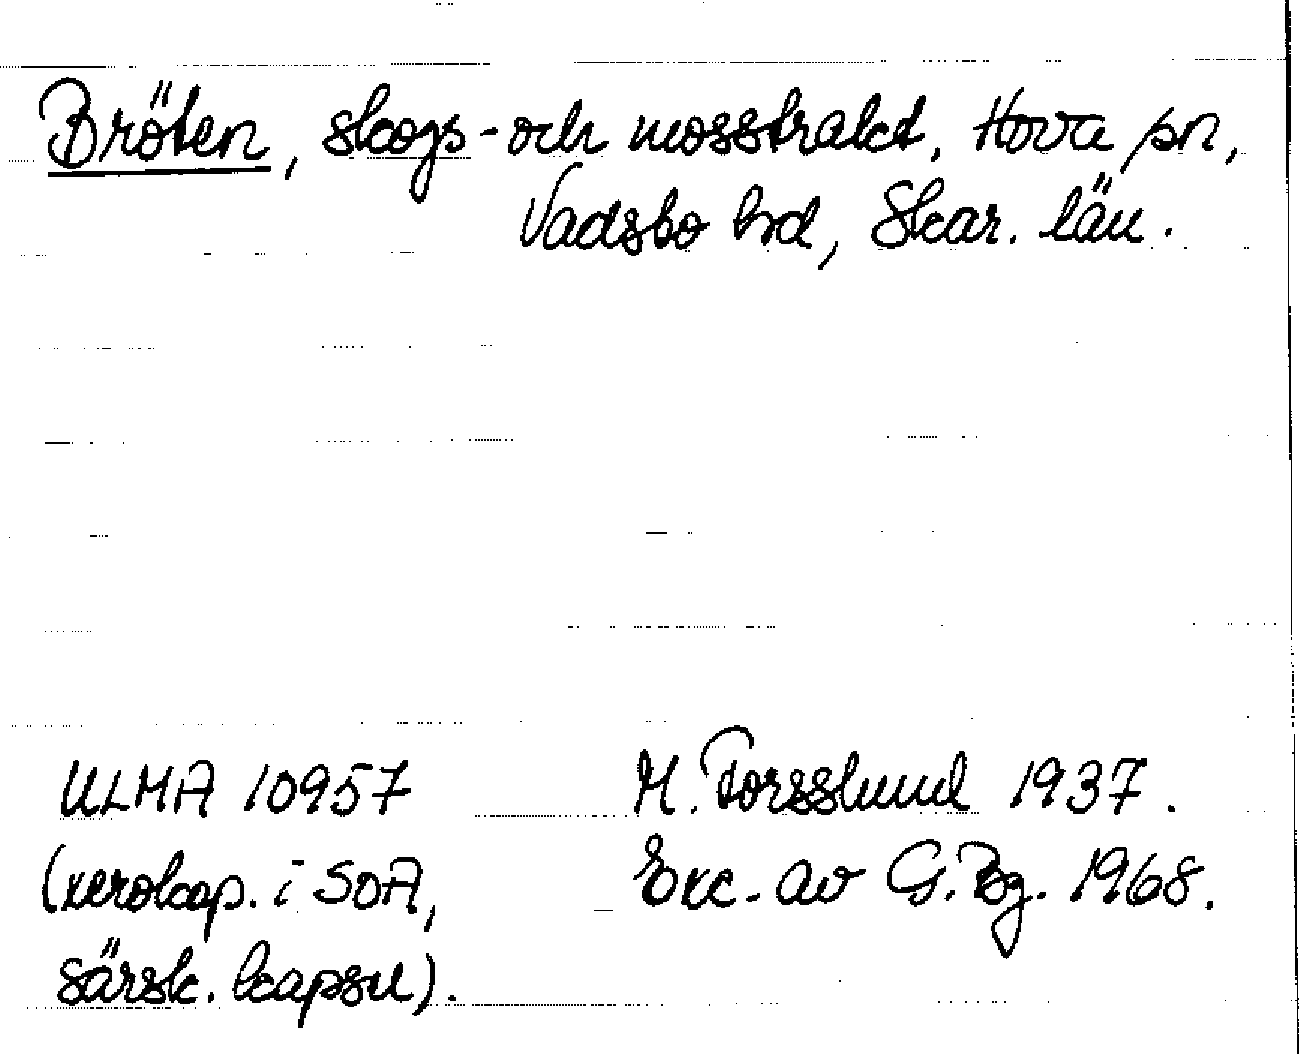 Bröten, skogs- och mosstrakt, Hova sn,
Vadsbo hd, Skar. län.
ULMA 10957 M. Forsslund 1937.
(xerokop. i SOA, Exc. av G. Bg. 1968.
särsk. kapsel).